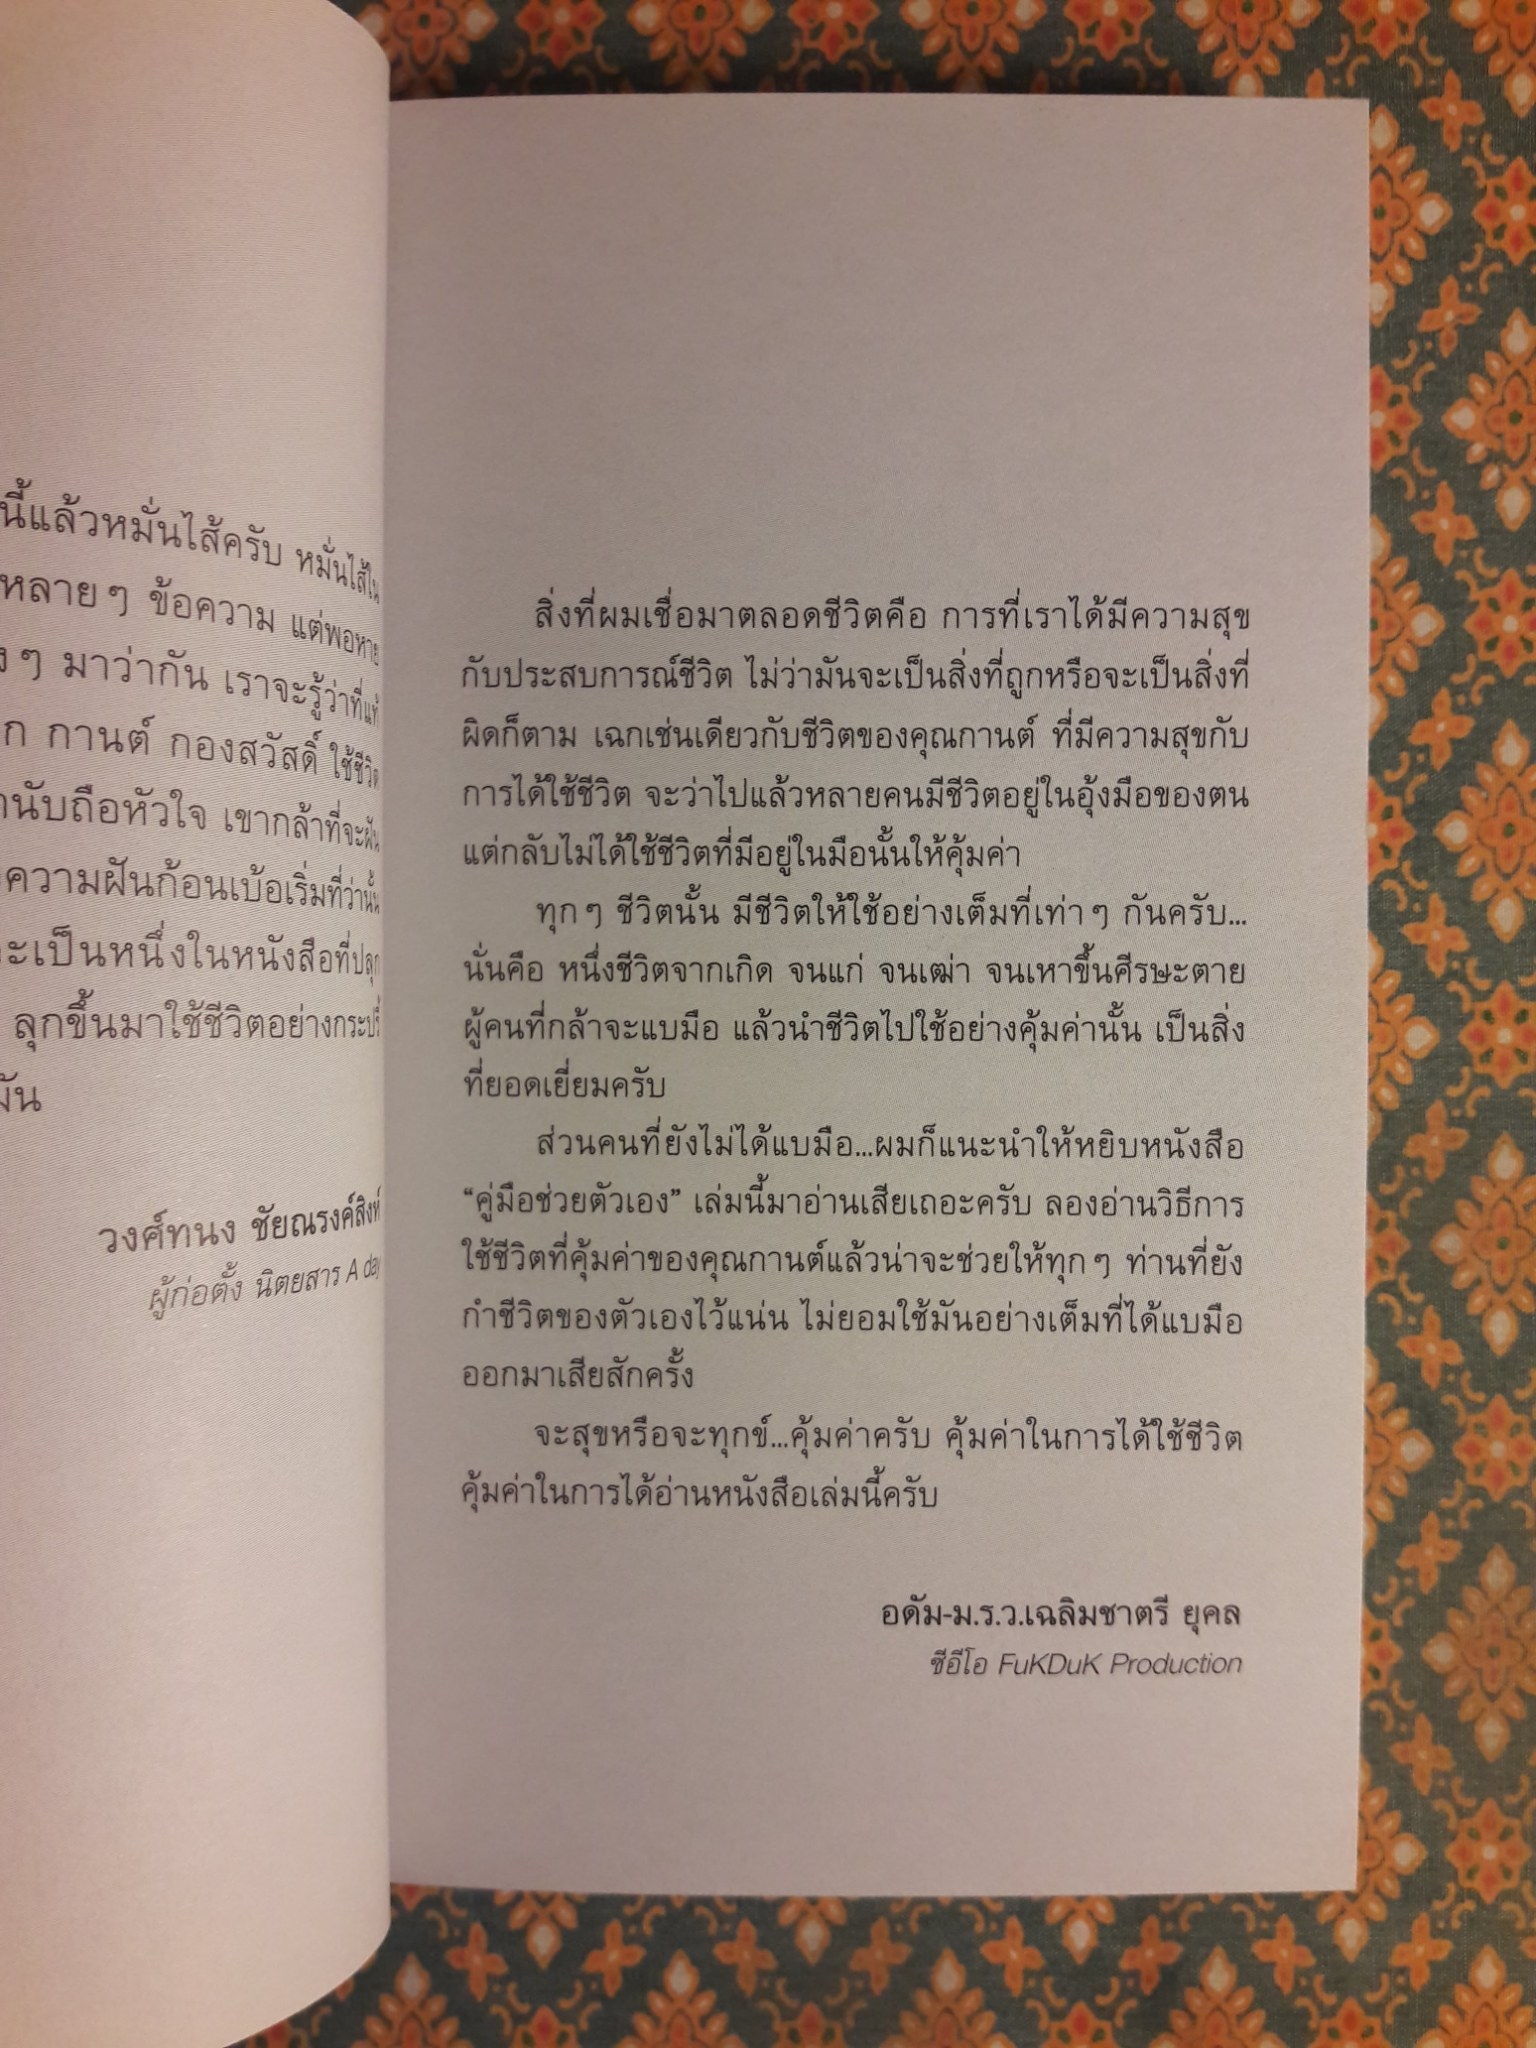 นี้แล้วหมั่นไส้ครับ หมั่นไส้ใน
หลายๆ ข้อความ แต่พอหาย
ๆ มาว่ากัน เราจะรู้ว่าที่แท้
ก กานต์ กองสวัสดิ์ ใช้ชีวิต
นับถือหัวใจ เขากล้าที่จะฝัน
ความฝันก้อนเบ้อเริ่มที่ว่านั้น
จะเป็นหนึ่งในหนังสือที่ปลุก
ลุกขึ้นมาใช้ชีวิตอย่างกระปรี้
มัน
วงศ์ทนง ชัยณรงค์สิงห์
ผู้ก่อตั้ง นิตยสาร A day
สิ่งที่ผมเชื่อมาตลอดชีวิตคือ การที่เราได้มีความสุข
กับประสบการณ์ชีวิต ไม่ว่ามันจะเป็นสิ่งที่ถูกหรือจะเป็นสิ่งที่
ผิดก็ตาม เฉกเช่นเดียวกับชีวิตของคุณกานต์ ที่มีความสุขกับ
การได้ใช้ชีวิต จะว่าไปแล้วหลายคนมีชีวิตอยู่ในอุ้งมือของตน
แต่กลับไม่ได้ใช้ชีวิตที่มีอยู่ในมือนั้นให้คุ้มค่า
ทุกๆ ชีวิตนั้น มีชีวิตให้ใช้อย่างเต็มที่เท่าๆ กันครับ...
นั่นคือ หนึ่งชีวิตจากเกิด จนแก่ จนเฒ่า จนเหาขึ้นศีรษะตาย
ผู้คนที่กล้าจะแบมือ แล้วนำชีวิตไปใช้อย่างคุ้มค่านั้น เป็นสิ่ง
ที่ยอดเยี่ยมครับ
ส่วนคนที่ยังไม่ได้แบมือ...ผมก็แนะนำให้หยิบหนังสือ
“คู่มือช่วยตัวเอง” เล่มนี้มาอ่านเสียเถอะครับ ลองอ่านวิธีการ
ใช้ชีวิตที่คุ้มค่าของคุณกานต์แล้วน่าจะช่วยให้ทุกๆ ท่านที่ยัง
กำชีวิตของตัวเองไว้แน่น ไม่ยอมใช้มันอย่างเต็มที่ได้แบมือ
ออกมาเสียสักครั้ง
จะสุขหรือจะทุกข์...คุ้มค่าครับ คุ้มค่าในการได้ใช้ชีวิต
คุ้มค่าในการได้อ่านหนังสือเล่มนี้ครับ
อดัม-ม.ร.ว.เฉลิมชาตรี ยุคล
ซีอีโอ FuKDuK Production